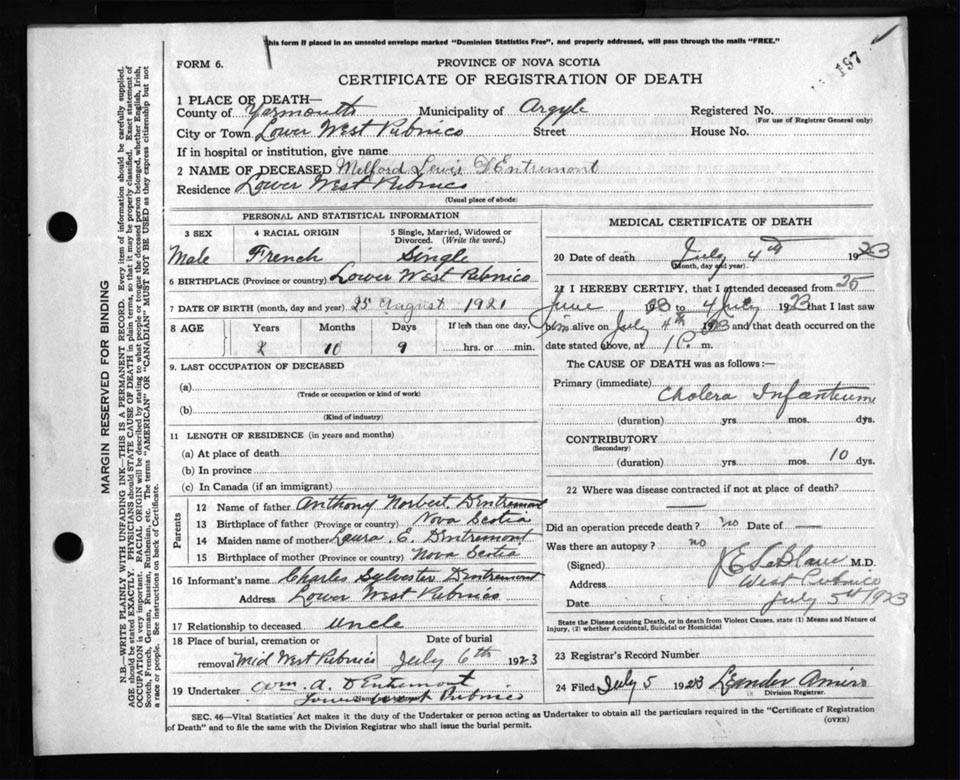 This form if placed in an unsealed envelope marked "Dominion Statistics Free", and properly addressed, will pass through the mails "FREE."
197
FORM 6.
PROVINCE OF NOVA SCOTIA
CERTIFICATE OF REGISTRATION OF DEATH
1 PLACE OF DEATH—
County of Yarmouth Municipality of Argyle Registered No.
(For use of Registrar General only)
City or Town Lower West Pubnico Street House No.
If in hospital or institution, give name
2 NAME OF DECEASED Melford Lewis D'Entremont
Residence Lower West Pubnico
(Usual place of abode)
PERSONAL AND STATISTICAL INFORMATION
3 SEX 4 RACIAL ORIGIN 5 Single, Married, Widowed or Divorced. (Write the word.)
Male French Single
6 BIRTHPLACE (Province or country) Lower West Pubnico
7 DATE OF BIRTH (month, day and year) 25 August 1921
8 AGE Years Months Days If less than one day,
10 9 hrs. or min.
9. LAST OCCUPATION OF DECEASED
(a)
(Trade or occupation or kind of work)
(b)
(Kind of industry)
11 LENGTH OF RESIDENCE (in years and months)
(a) At place of death
(b) In province
(c) In Canada (if an immigrant)
Parents
12 Name of father Anthony Norbert Dentremont
13 Birthplace of father (Province or country) Nova Scotia
14 Maiden name of mother Laura C. Dentremont
15 Birthplace of mother (Province or country) Nova Scotia
16 Informant's name Charles Sylvester Dentremont
Address Lower West Pubnico
17 Relationship to deceased Uncle
18 Place of burial, cremation or removal Mid West Pubnico Date of burial July 6th 1923
19 Undertaker Wm. A. D'Entremont
Lower West Pubnico
MEDICAL CERTIFICATE OF DEATH
20 Date of death July 4th 1923
(Month, day and year).
21 I HEREBY CERTIFY, that I attended deceased from 25
June 23 to 4 July 1923 that I last saw
him alive on July 4th 1923 and that death occurred on the
date stated above, at 1 P. m.
The CAUSE OF DEATH was as follows:—
Primary (immediate) Cholera Infantum
(duration) yrs. mos. dys.
CONTRIBUTORY
(Secondary)
(duration) yrs. mos. 10 dys.
22 Where was disease contracted if not at place of death?
—
Did an operation precede death? no Date of —
Was there an autopsy? no
(Signed) LeBlanc M.D.
Address West Pubnico
Date July 5th 1923
State the Disease causing Death, or in death from Violent Causes, state (1) Means and Nature of Injury, (2) whether Accidental, Suicidal or Homicidal
23 Registrar's Record Number
24 Filed July 5 1923 Leander Amiro
Division Registrar.
SEC. 46—Vital Statistics Act makes it the duty of the Undertaker or person acting as Undertaker to obtain all the particulars required in the "Certificate of Registration
of Death" and to file the same with the Division Registrar who shall issue the burial permit.
(OVER)
MARGIN RESERVED FOR BINDING
N.B.—WRITE PLAINLY WITH UNFADING INK—THIS IS A PERMANENT RECORD. Every item of information should be carefully supplied.
AGE should be stated EXACTLY. PHYSICIANS should STATE CAUSE OF DEATH in plain terms, so that it may be properly classified. Exact statement of
OCCUPATION is very important. RACIAL ORIGIN will be described by stating to what people or tongue the deceased person belonged, whether English, Irish,
Scotch, French, German, Russian, Ruthenian, etc. The terms "AMERICAN" OR "CANADIAN" MUST NOT BE USED as they express citizenship but not
a race or people. See instructions on back of Certificate.